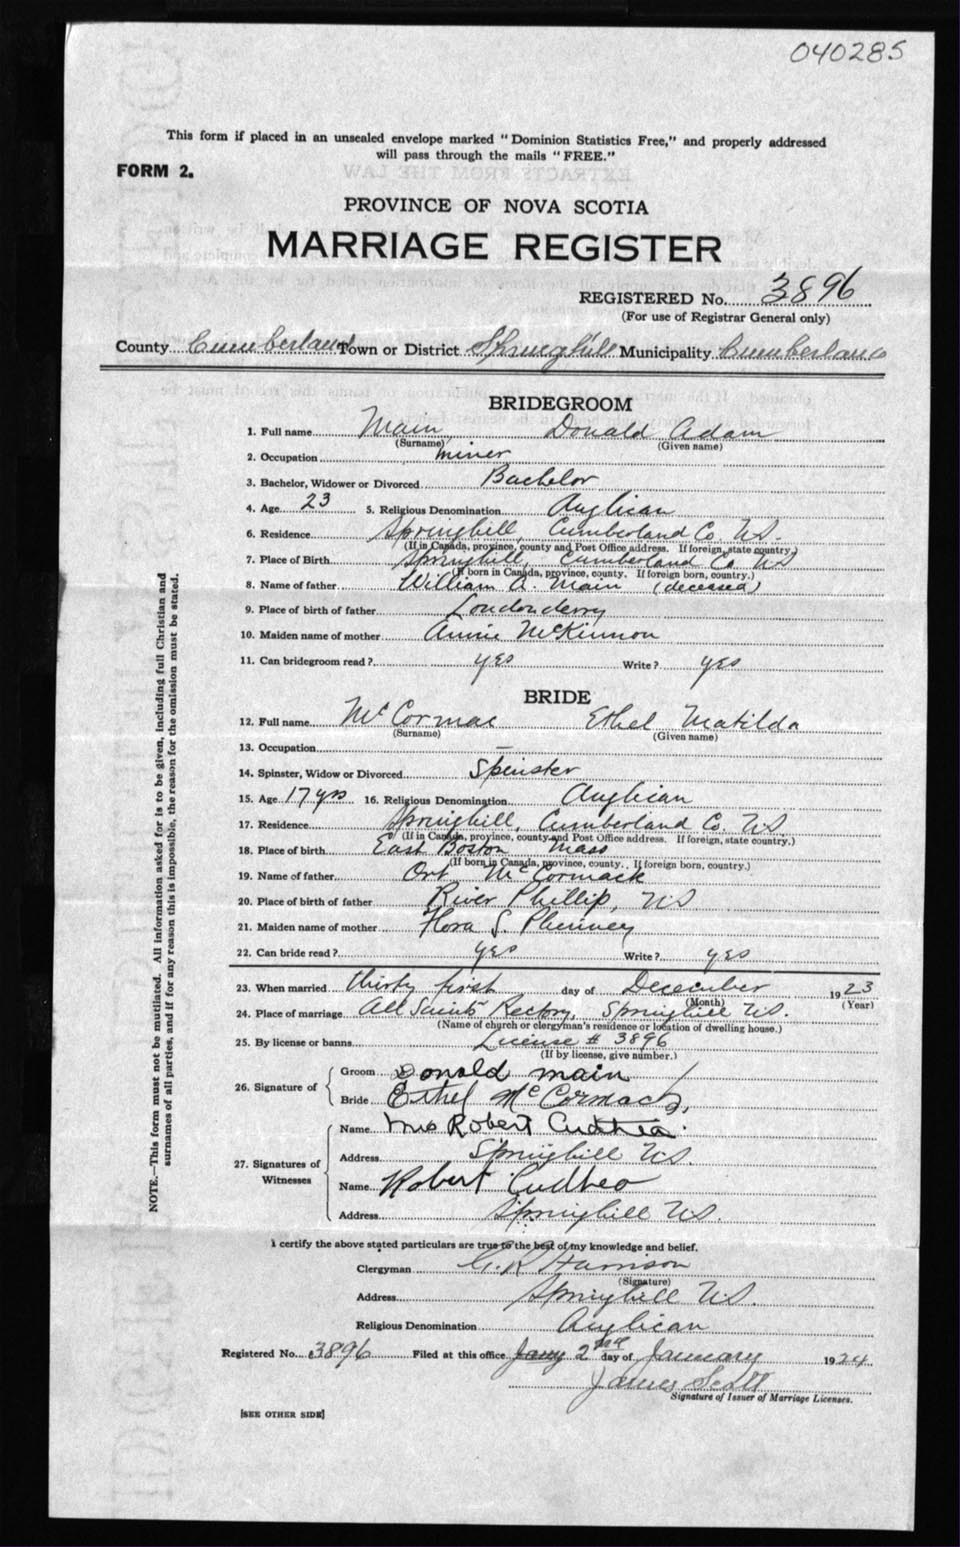 040285
This form if placed in an unsealed envelope marked "Dominion Statistics Free," and properly addressed
will pass through the mails "FREE."
FORM 2.
PROVINCE OF NOVA SCOTIA
MARRIAGE REGISTER
REGISTERED No. 3896
(For use of Registrar General only)
County Cumberland Town or District Springhill Municipality Cumberland
BRIDEGROOM
1. Full name Main Donald Adam
(Surname) (Given name)
2. Occupation miner
3. Bachelor, Widower or Divorced Bachelor
4. Age 23 5. Religious Denomination Anglican
6. Residence Springhill, Cumberland Co. NS.
(If in Canada, province, county and Post Office address. If foreign, state country.)
7. Place of Birth Springhill, Cumberland Co NS
(If born in Canada, province, county. If foreign born, country.)
8. Name of father William A. Main (deceased)
9. Place of birth of father Londonderry
10. Maiden name of mother Annie McKinnon
11. Can bridegroom read? yes Write? yes
BRIDE
12. Full name McCormac Ethel Matilda
(Surname) (Given name)
13. Occupation —
14. Spinster, Widow or Divorced Spinster
15. Age 17 yrs 16. Religious Denomination Anglican
17. Residence Springhill, Cumberland Co. NS
(If in Canada, province, county and Post Office address. If foreign, state country.)
18. Place of birth East Boston Mass
(If born in Canada, province, county. If foreign born, country.)
19. Name of father McCormack
20. Place of birth of father River Phillip, NS
21. Maiden name of mother Flora S. Phinney
22. Can bride read? yes Write? yes
23. When married thirty first day of December 1923
(Month) (Year)
24. Place of marriage All Saints Rectory, Springhill NS.
(Name of church or clergyman's residence or location of dwelling house.)
25. By license or banns License # 3896
(If by license, give number.)
26. Signature of Groom Donald main
Bride Ethel McCormack,
27. Signatures of Witnesses Name Mrs Robert
Address Springhill NS.
Name Robert
Address Springhill NS.
I certify the above stated particulars are true to the best of my knowledge and belief.
Clergyman Harrison
(Signature)
Address Springhill NS.
Religious Denomination Anglican
Registered No. 3896 Filed at this office Jany 2nd day of January 1924
James Scott
Signature of Issuer of Marriage Licenses.
[SEE OTHER SIDE]
NOTE.—This form must not be mutilated. All information asked for is to be given, including full Christian and
surnames of all parties, and if for any reason this is impossible, the reason for the omission must be stated.